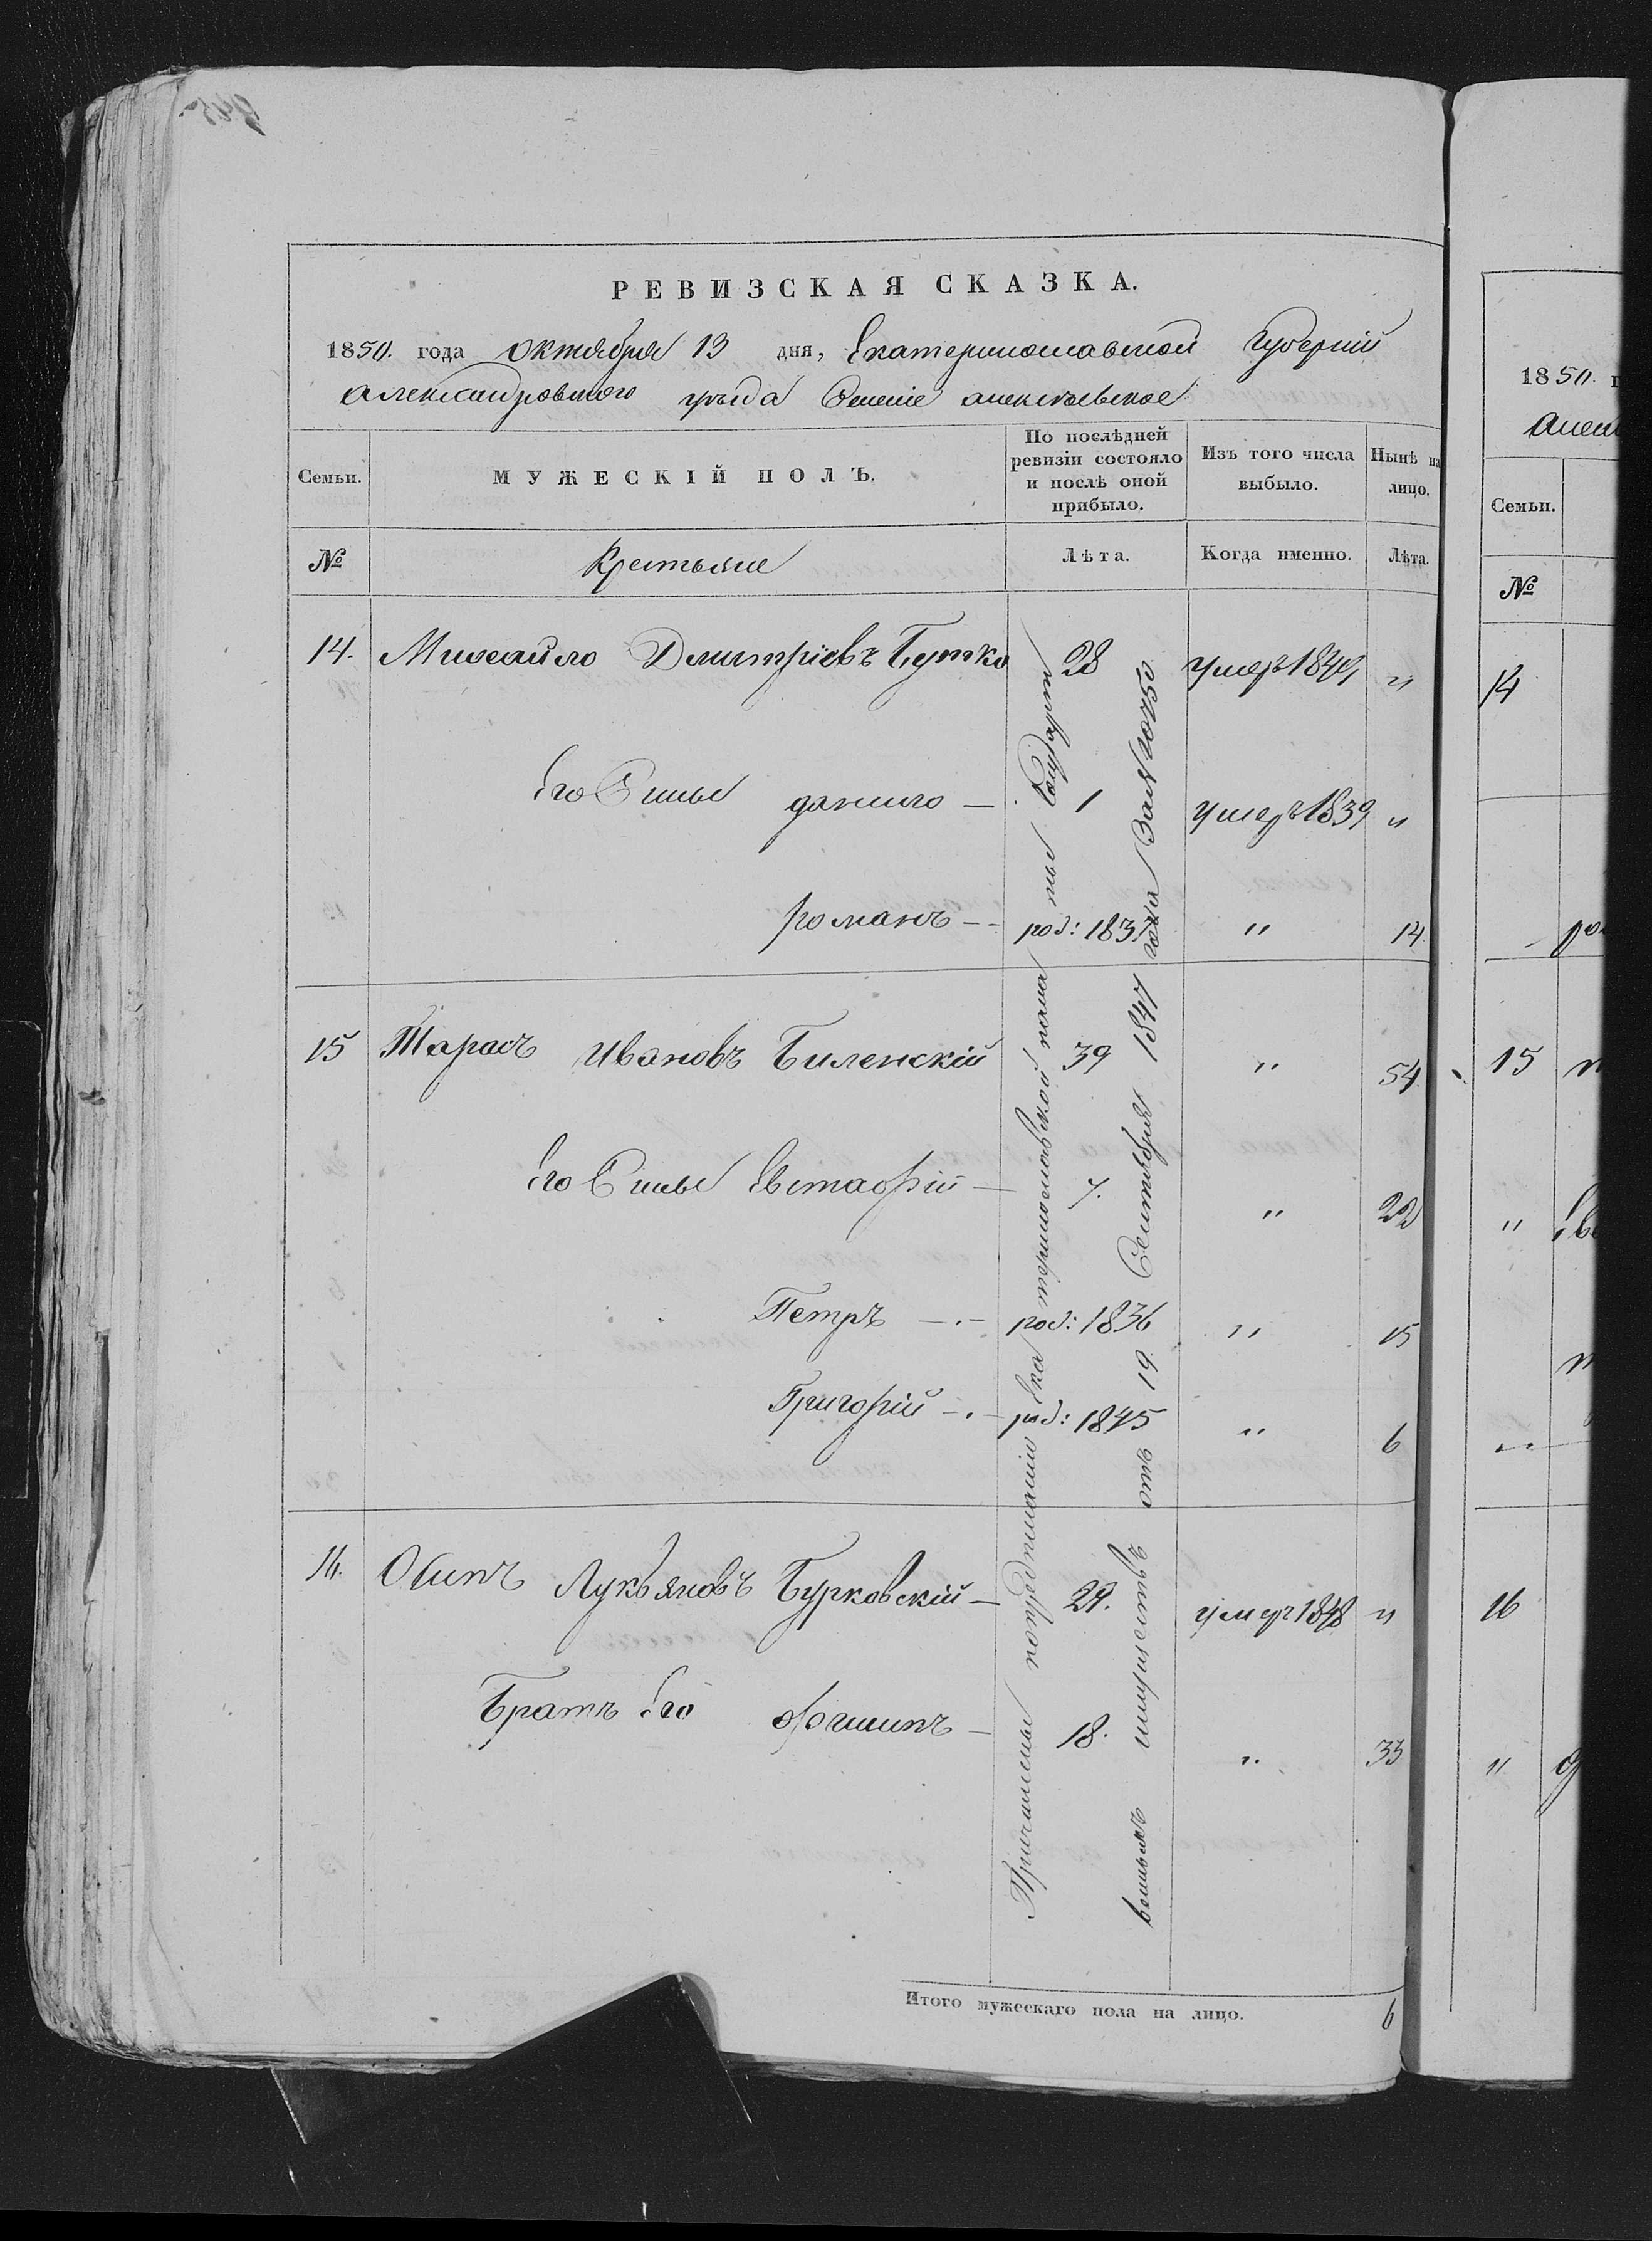 РЕВИЗСКАЯ СКАЗКА.
1850. года октября 13 дня, Екатеринославской Губерніи
Александровского уѣзда Селеніе алексѣевское
Семьи. МУЖЕСКІЙ ПОЛЪ. По послѣдней ревизіи состояло и послѣ оной прибыло. Изъ того числа выбыло. Нынѣ на лицо.
№ Крестьяне Лѣта. Когда именно. Лѣта.
14. Михайло Дмитріевъ Бутко 28 умеръ 1849 "
Его Сыны данило — 1 умеръ 1839 "
романъ — род: 1837 " 14
15 Тарасъ Ивановъ Биленскій 39 " 54
Его Сыны Евстафій — 7. " 22
Петръ — род: 1836 " 15
Григорій — род: 1845 " 6
16. Осипъ Лукьяновъ Бурковскій — 29. умеръ 1848 "
Братъ Его филипъ — 18. " 33
Причислены по предписанію Екатеринославской палаты Государст
венныхъ имуществъ отъ 19 Сентября 1847 года За № 20750
Итого мужескаго пола на лицо. 6
1850. г
Семьи.
№
14
15
"
16
"